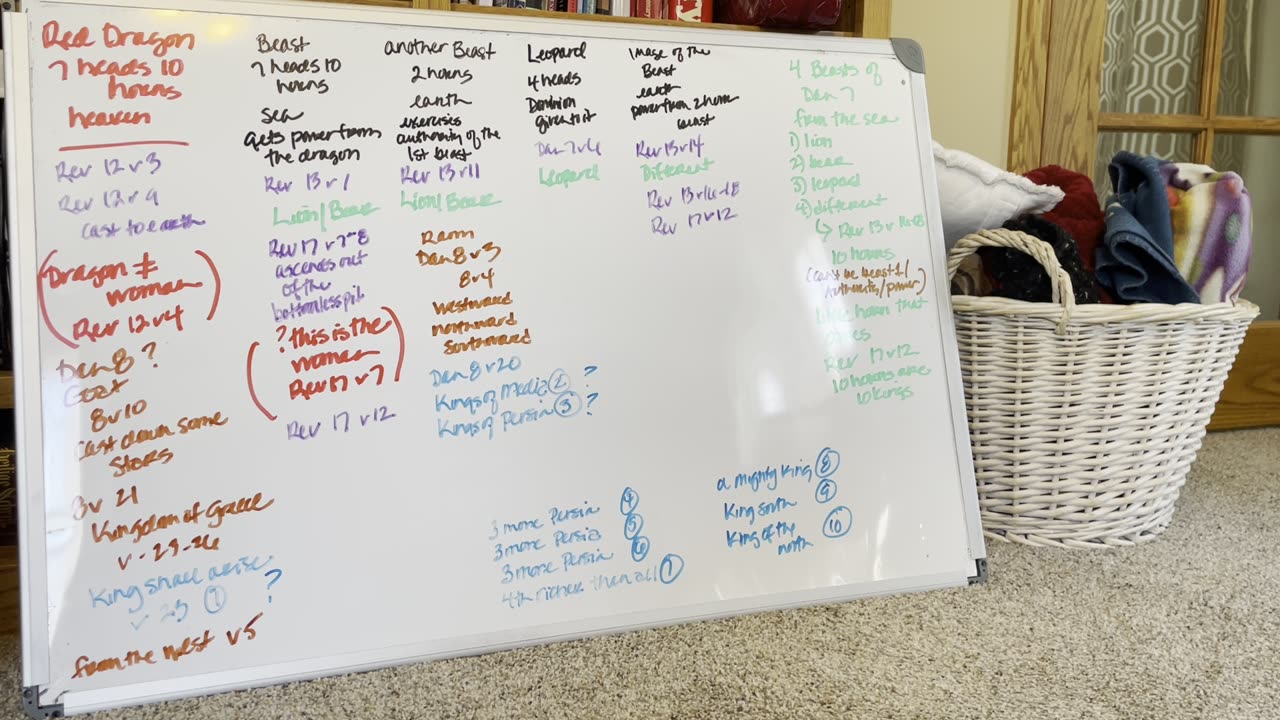 Red Dragon
7 heads 10
horns
heaven
Rev 12 v3
Rev 12 v9
cast to earth
(Dragon ≠
woman
Rev 12 v4)
Dan 8 ?
Goat
8 v 10
Cast down some
Stars
8 v 21
Kingdom of Greece
v-23-26
King shall arise
v 23 ① ?
from the west v5
Beast
7 heads 10
horns
sea
gets power from
the dragon
Rev 13 v1
Lion/Bear
Rev 17 v 7-8
ascends out
of the
bottomless pit
(? this is the
woman
Rev 17 v7)
Rev 17 v12
another Beast
2 horns
earth
exercises
authority of the
1st beast
Rev 13 v11
Lion/Bear
Ram
Dan 8 v3
8 v4
westward
northward
Southward
Dan 8 v20
Kings of Media ② ?
Kings of Persia ③ ?
Leopard
4 heads
Dominion
given to it
Dan 7 v6
Leopard
Image of the
Beast
earth
power from 2 horn
beast
Rev 13 v14
Different
Rev 13 v16-18
Rev 17 v12
3 more Persia ④
3 more Persia ⑤
3 more Persia ⑥
4th richer then all ⑦
a mighty King ⑧
King South ⑨
King of the ⑩
north
4 Beasts of
Dan 7
from the sea
1) lion
2) bear
3) leopard
4) different
↳ Rev 13 v 16-18
10 horns
(can't be beast 1/
authority/power)
horn that
Rev 17 v12
10 horns are
10 kings